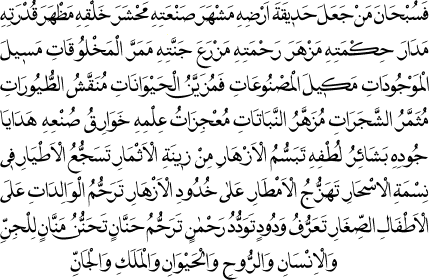 فَسُبْحَانَ مَنْ جَعَلَ حَدِيقَةَ اَرْضِهِ مَشْهَرَ صَنْعَتِهِ مَحْشَرَ خَلْقِهِ مَظْهَرَ قُدْرَتِهِ
مَدَارَ حِكْمَتِهِ مَزْهَرَ رَحْمَتِهِ مَزْرَعَ جَنَّتِهِ مَمَرَّ الْمَخْلُوقَاتِ مَسِيلَ
الْمَوْجُودَاتِ مَكِيلَ الْمَصْنُوعَاتِ فَمُزَيَّنُ الْحَيْوَانَاتِ مُنَقَّشُ الطُّيُورَاتِ
مُثَمَّرُ الشَّجَرَاتِ مُزَهَّرُ النَّبَاتَاتِ مُعْجِزَاتُ عِلْمِهِ خَوَارِقُ صُنْعِهِ هَدَايَا
جُودِهِ بَشَائِرُ لُطْفِهِ تَبَسُّمُ الْاَزْهَارِ مِنْ زِينَةِ الْاَثْمَارِ تَسَجُّعُ الْاَطْيَارِ فِى
نِسْمَةِ الْاَسْحَارِ تَهَزُّجُ الْاَمْطَارِ عَلٰى خُدُودِ الْاَزْهَارِ تَرَحُّمُ الْوَالِدَاتِ عَلَى
الْاَطْفَالِ الصِّغَارِ تَعَرُّفُ وَدُودٍ تَوَدُّدُ رَحْمٰنٍ تَرَحُّمُ حَنَّانٍ تَحَنُّنُ مَنَّانٍ لِلْجِنِّ
وَالْاِنْسَانِ وَالرُّوحِ وَالْحَيْوَانِ وَالْمَلَكِ وَالْجَانِّ